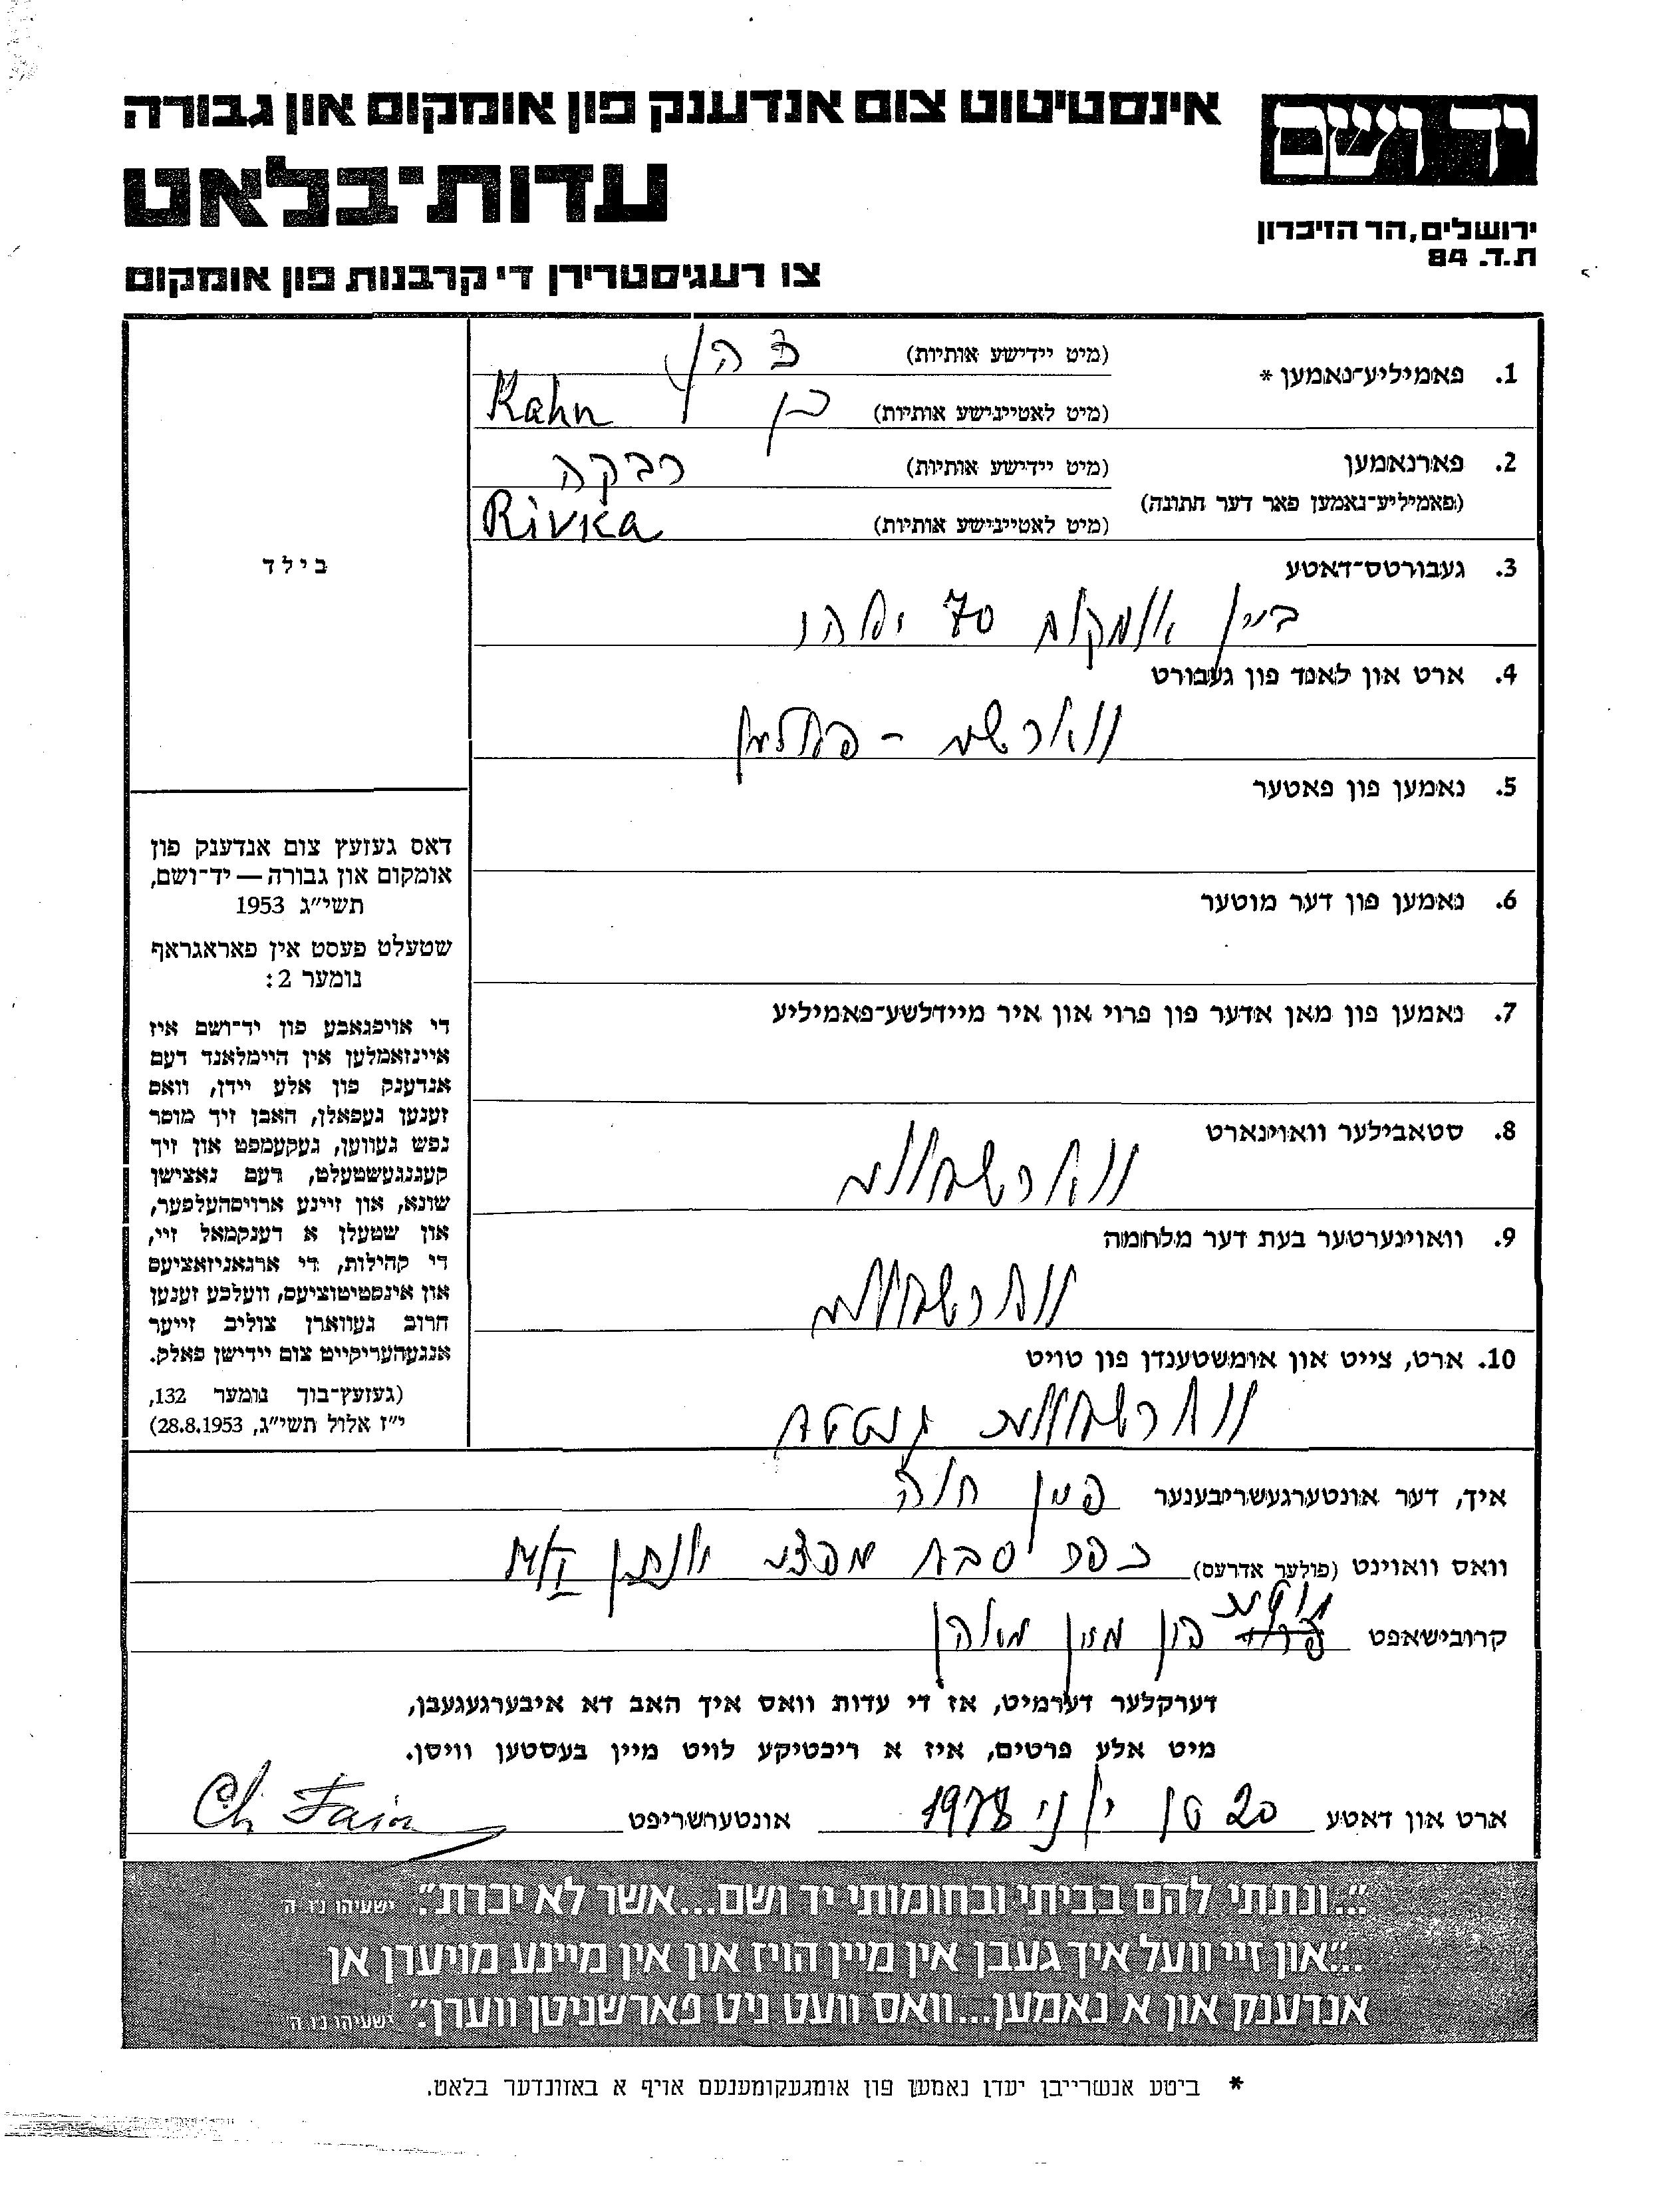 אינסטיטוט צום אנדענק פון אומקום און גבורה
יד ושם
עדות־בלאט
ירושלים, הר הזיכרון
ת.ד. 84
צו רעגיסטרירן די קרבנות פון אומקום
1. פאמיליע־נאמען * (מיט יידישע אותיות) כהן
(מיט לאטיינישע אותיות) כן Kahn
2. פארנאמען (מיט יידישע אותיות) רבקה
(פאמיליע־נאמען פאר דער חתונה)
(מיט לאטיינישע אותיות) Rivka
בילד
3. געבורטס־דאטע
ביין אומקום 70 יאהר
4. ארט און לאנד פון געבורט
ווארשע - פוילען
5. נאמען פון פאטער
6. נאמען פון דער מוטער
7. נאמען פון מאן אדער פון פרוי און איר מיידלשע־פאמיליע
8. סטאבילער וואוינארט
ווארשווע
9. וואוינערטער בעת דער מלחמה
ווארשווע
10. ארט, צייט און אומשטענדן פון טויט
ווארשווע געטטא
דאס געזעץ צום אנדענק פון
אומקום און גבורה — יד־ושם,
תשי״ג 1953
שטעלט פעסט אין פאראגראף
נומער 2:
די אויפגאבע פון יד־ושם איז
איינזאמלען אין היימלאנד דעם
אנדענק פון אלע יידן, וואס
זענען געפאלן, האבן זיך מוסר
נפש געווען, געקעמפט און זיך
קעגנגעשטעלט, דעם נאצישן
שונא, און זיינע ארויסהעלפער,
און שטעלן א דענקמאל זיי,
די קהילות, די ארגאניזאציעס
און אינסטיטוציעס, וועלכע זענען
חרוב געווארן צוליב זייער
אנגעהעריקייט צום יידישן פאלק.
(געזעץ־בוך נומער 132,
י״ז אלול תשי״ג, 28.8.1953)
איך, דער אונטערגעשריבענער פיין חוה
וואס וואוינט (פולער אדרעס) כפר סבא
קרובישאפט פון מיין
דערקלער דערמיט, אז די עדות וואס איך האב דא איבערגעגעבן,
מיט אלע פרטים, איז א ריכטיקע לויט מיין בעסטען וויסן.
ארט און דאטע 20 טן יוני 1978 אונטערשריפט Ch Fain
״...ונתתי להם בביתי ובחומותי יד ושם...אשר לא יכרת״. ישעיהו נו. ה
...״און זיי וועל איך געבן אין מיין הויז און אין מיינע מויערן אן
אנדענק און א נאמען...וואס וועט ניט פארשניטן ווערן.״ ישעיהו נו. ה
* ביטע אנשרייבן יעדן נאמען פון אומגעקומענעם אויף א באזונדער בלאט.